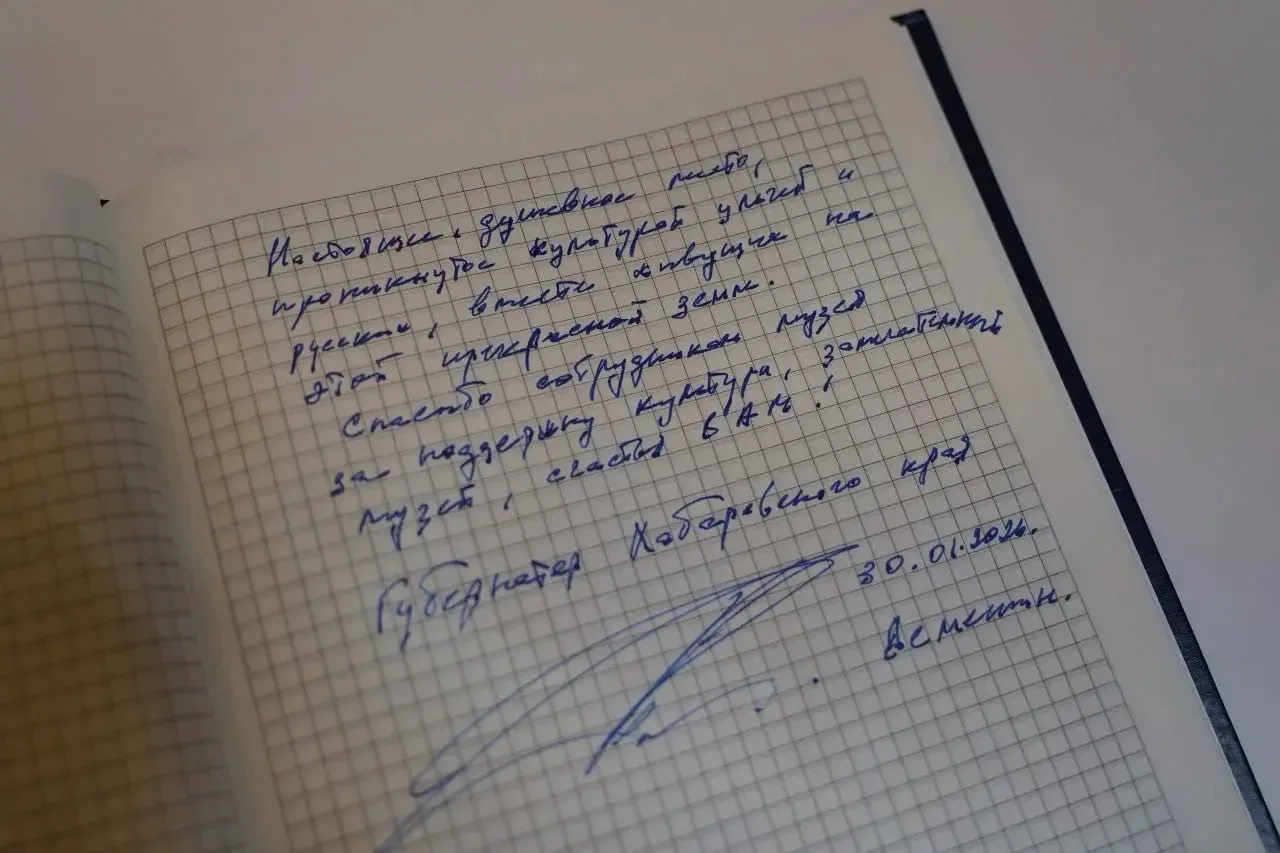 Настоящее, душевное место,
проникнутое культурой ульчей и
русских, вместе живущих на
этой прекрасной земле.
Спасибо сотрудникам музея
за поддержку культуры,
музея, счастья ВАМ!
Губернатор Хабаровского края
30.01.2026.